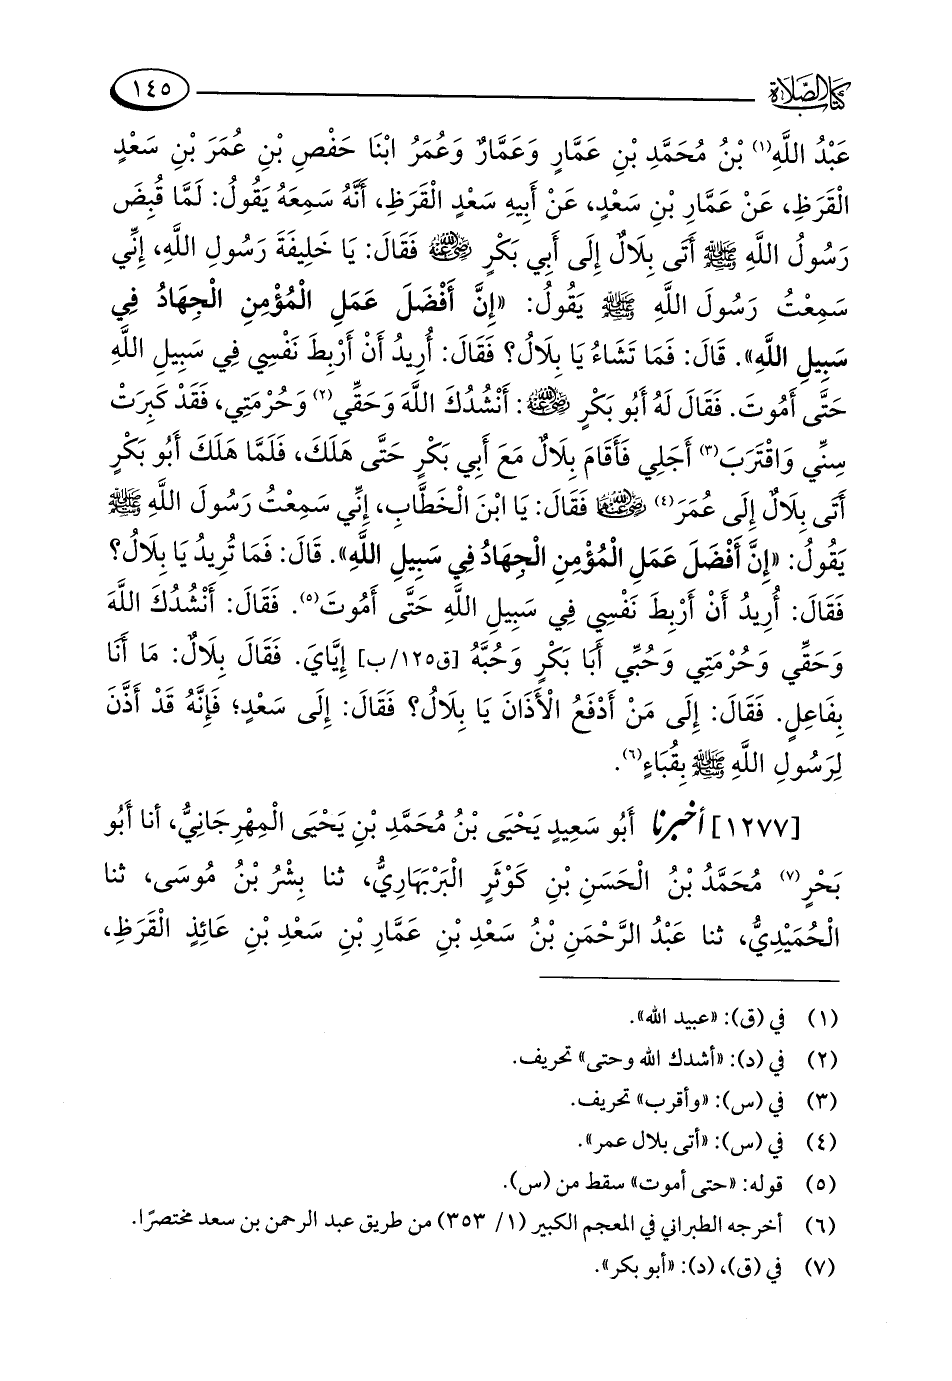 كتاب الصلاة ١٤٥
عَبْدُ اللَّهِ(١) بْنُ مُحَمَّدِ بْنِ عَمَّارٍ وَعَمَّارٌ وَعُمَرُ ابْنَا حَفْصِ بْنِ عُمَرَ بْنِ سَعْدٍ
الْقَرَظِ، عَنْ عَمَّارِ بْنِ سَعْدٍ، عَنْ أَبِيهِ سَعْدٍ الْقَرَظِ، أَنَّهُ سَمِعَهُ يَقُولُ: لَمَّا قُبِضَ
رَسُولُ اللَّهِ ﷺ أَتَى بِلَالٌ إِلَى أَبِي بَكْرٍ رضي الله عنه فَقَالَ: يَا خَلِيفَةَ رَسُولِ اللَّهِ، إِنِّي
سَمِعْتُ رَسُولَ اللَّهِ ﷺ يَقُولُ: «إِنَّ أَفْضَلَ عَمَلِ الْمُؤْمِنِ الْجِهَادُ فِي
سَبِيلِ اللَّهِ». قَالَ: فَمَا تَشَاءُ يَا بِلَالُ؟ فَقَالَ: أُرِيدُ أَنْ أَرْبِطَ نَفْسِي فِي سَبِيلِ اللَّهِ
حَتَّى أَمُوتَ. فَقَالَ لَهُ أَبُو بَكْرٍ رضي الله عنه: أَنْشُدُكَ اللَّهَ وَحَقِّي(٢) وَحُرْمَتِي، فَقَدْ كَبِرَتْ
سِنِّي وَاقْتَرَبَ(٣) أَجَلِي فَأَقَامَ بِلَالٌ مَعَ أَبِي بَكْرٍ حَتَّى هَلَكَ، فَلَمَّا هَلَكَ أَبُو بَكْرٍ
أَتَى بِلَالٌ إِلَى عُمَرَ(٤) رضي الله عنهما فَقَالَ: يَا ابْنَ الْخَطَّابِ، إِنِّي سَمِعْتُ رَسُولَ اللَّهِ ﷺ
يَقُولُ: «إِنَّ أَفْضَلَ عَمَلِ الْمُؤْمِنِ الْجِهَادُ فِي سَبِيلِ اللَّهِ». قَالَ: فَمَا تُرِيدُ يَا بِلَالُ؟
فَقَالَ: أُرِيدُ أَنْ أَرْبِطَ نَفْسِي فِي سَبِيلِ اللَّهِ حَتَّى أَمُوتَ(٥). فَقَالَ: أَنْشُدُكَ اللَّهَ
وَحَقِّي وَحُرْمَتِي وَحُبِّي أَبَا بَكْرٍ وَحُبَّهُ [ق١٢٥/ب] إِيَّايَ. فَقَالَ بِلَالٌ: مَا أَنَا
بِفَاعِلٍ. فَقَالَ: إِلَى مَنْ أَدْفَعُ الْأَذَانَ يَا بِلَالُ؟ فَقَالَ: إِلَى سَعْدٍ؛ فَإِنَّهُ قَدْ أَذَّنَ
لِرَسُولِ اللَّهِ ﷺ بِقُبَاءٍ(٦).
[١٢٧٧] أخبرنا أَبُو سَعِيدٍ يَحْيَى بْنُ مُحَمَّدِ بْنِ يَحْيَى الْمِهْرِجَانِيُّ، أنا أَبُو
بَحْرٍ(٧) مُحَمَّدُ بْنُ الْحَسَنِ بْنِ كَوْثَرٍ الْبَرْبَهَارِيُّ، ثنا بِشْرُ بْنُ مُوسَى، ثنا
الْحُمَيْدِيُّ، ثنا عَبْدُ الرَّحْمَنِ بْنُ سَعْدِ بْنِ عَمَّارِ بْنِ سَعْدِ بْنِ عَائِذٍ الْقَرَظِ،
(١) في (ق): «عبيد الله».
(٢) في (د): «أشدك الله وحتى» تحريف.
(٣) في (س): «وأقرب» تحريف.
(٤) في (س): «أتى بلال عمر».
(٥) قوله: «حتى أموت» سقط من (س).
(٦) أخرجه الطبراني في المعجم الكبير (١/ ٣٥٣) من طريق عبد الرحمن بن سعد مختصرًا.
(٧) في (ق)، (د): «أبو بكر».